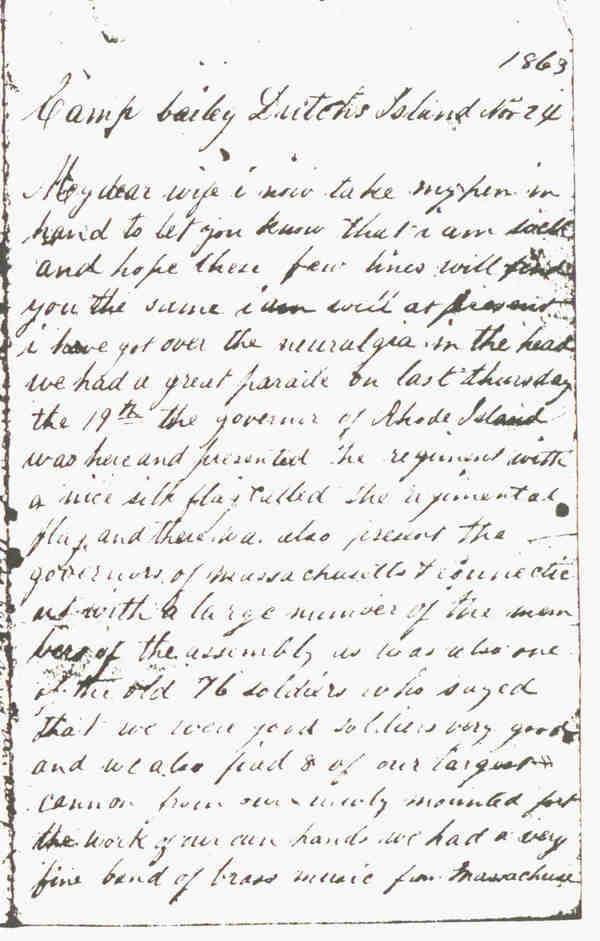 1863
Camp bailey Dutchs Island Nov 24
My dear wife i now take my pen in
hand to let you know that i am
and hope these few lines will find
you the same i am well at present
i have got over the neuralgia in the head
we had a great parade on last thursday
the 19th the governor of Rhode Island
was here and presented the regiment with
a nice silk flag called the regimental
flag and there was also present the
governors of massachusetts & connectic
ut with a large number of the mem
bers of the assembly as was also one
of the old 76 soldiers who sayed
that we were good soldiers very good
and we also fired 8 of our largest
cannon from our newly mounted fort
the work of our own hands we had a very
fine band of brass music from Massachuse